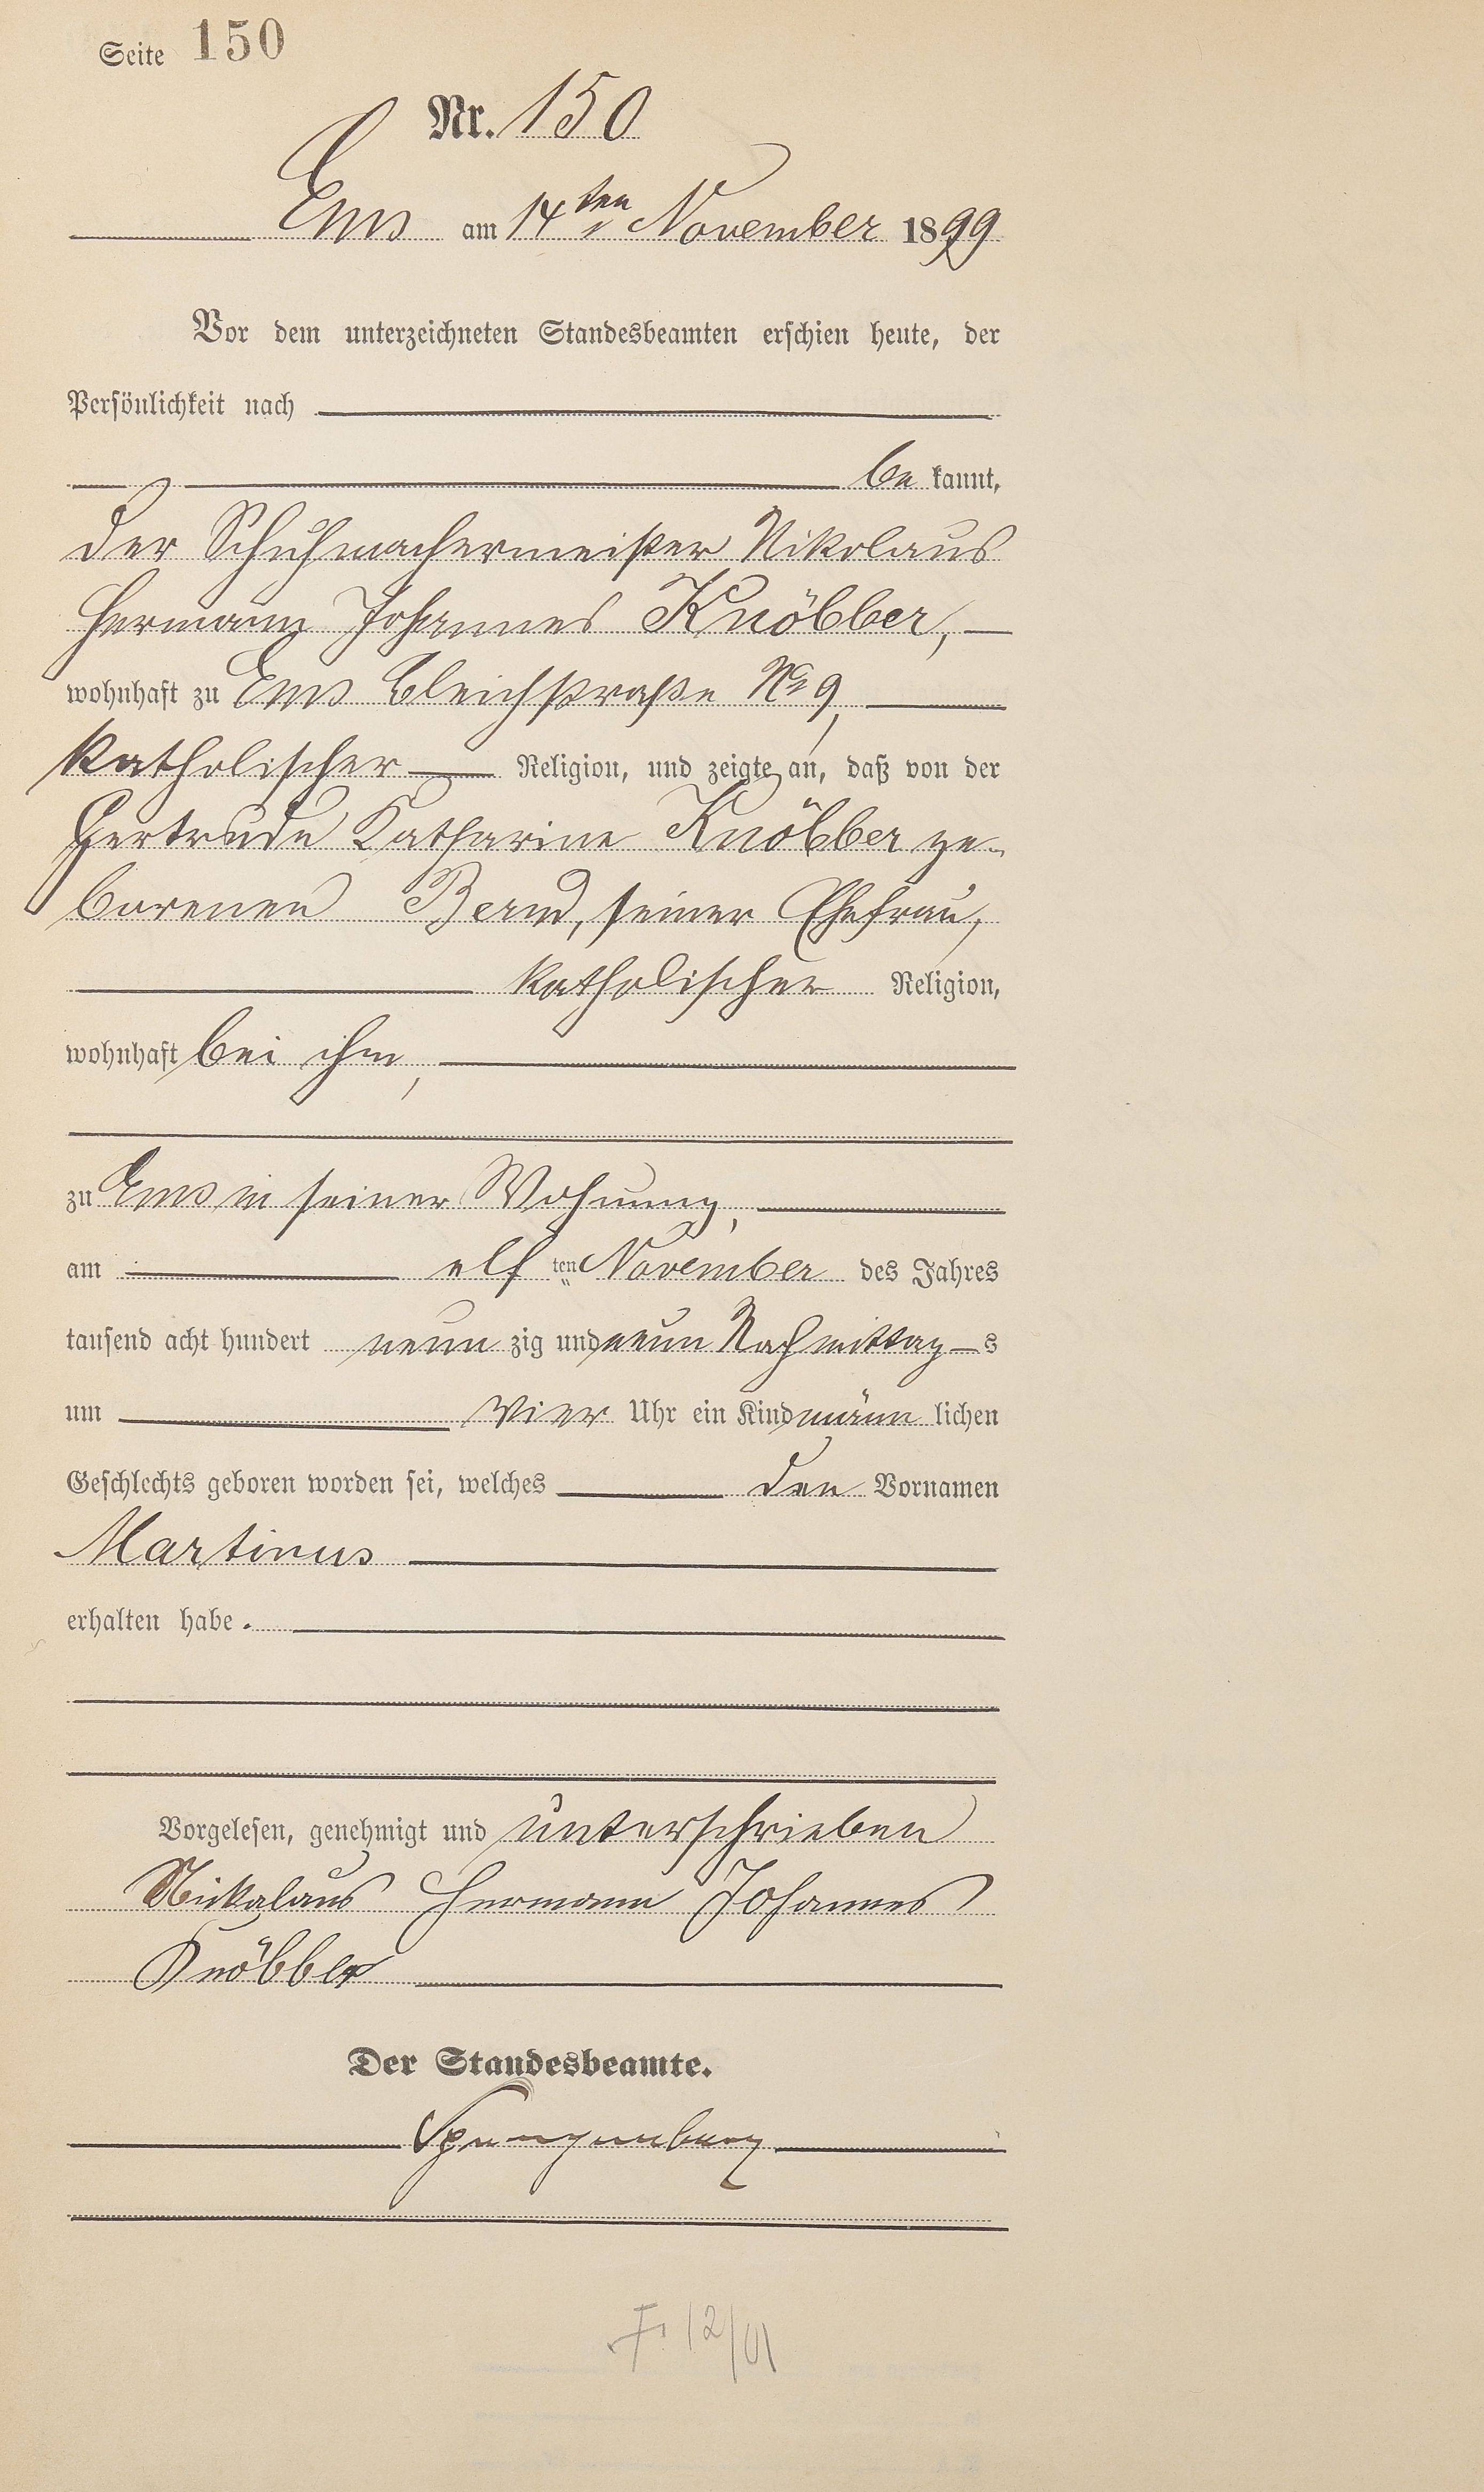 Seite 150
Nr. 150
Ems am 14ten November 1899
Vor dem unterzeichneten Standesbeamten erschien heute, der
Persönlichkeit nach
be kannt,
der Schuhmachermeister Nikolaus
Hermann Johannes Knöbber,
wohnhaft zu Ems Bleichstraße No 9,
katholischer Religion, und zeigte an, daß von der
Gertrude Katharine Knöbber ge-
borenen Bernd, seiner Ehefrau,
katholischer Religion,
wohnhaft bei ihm,
zu Ems in seiner Wohnung,
am elf ten November des Jahres
tausend acht hundert neun zig und neun Nachmittag s
um vier Uhr ein Kind männ lichen
Geschlechts geboren worden sei, welches den Vornamen
Martinus
erhalten habe.
Vorgelesen, genehmigt und unterschrieben
Nickolaus Hermann Johannes
Knöbber
Der Standesbeamte.
Spangenberg